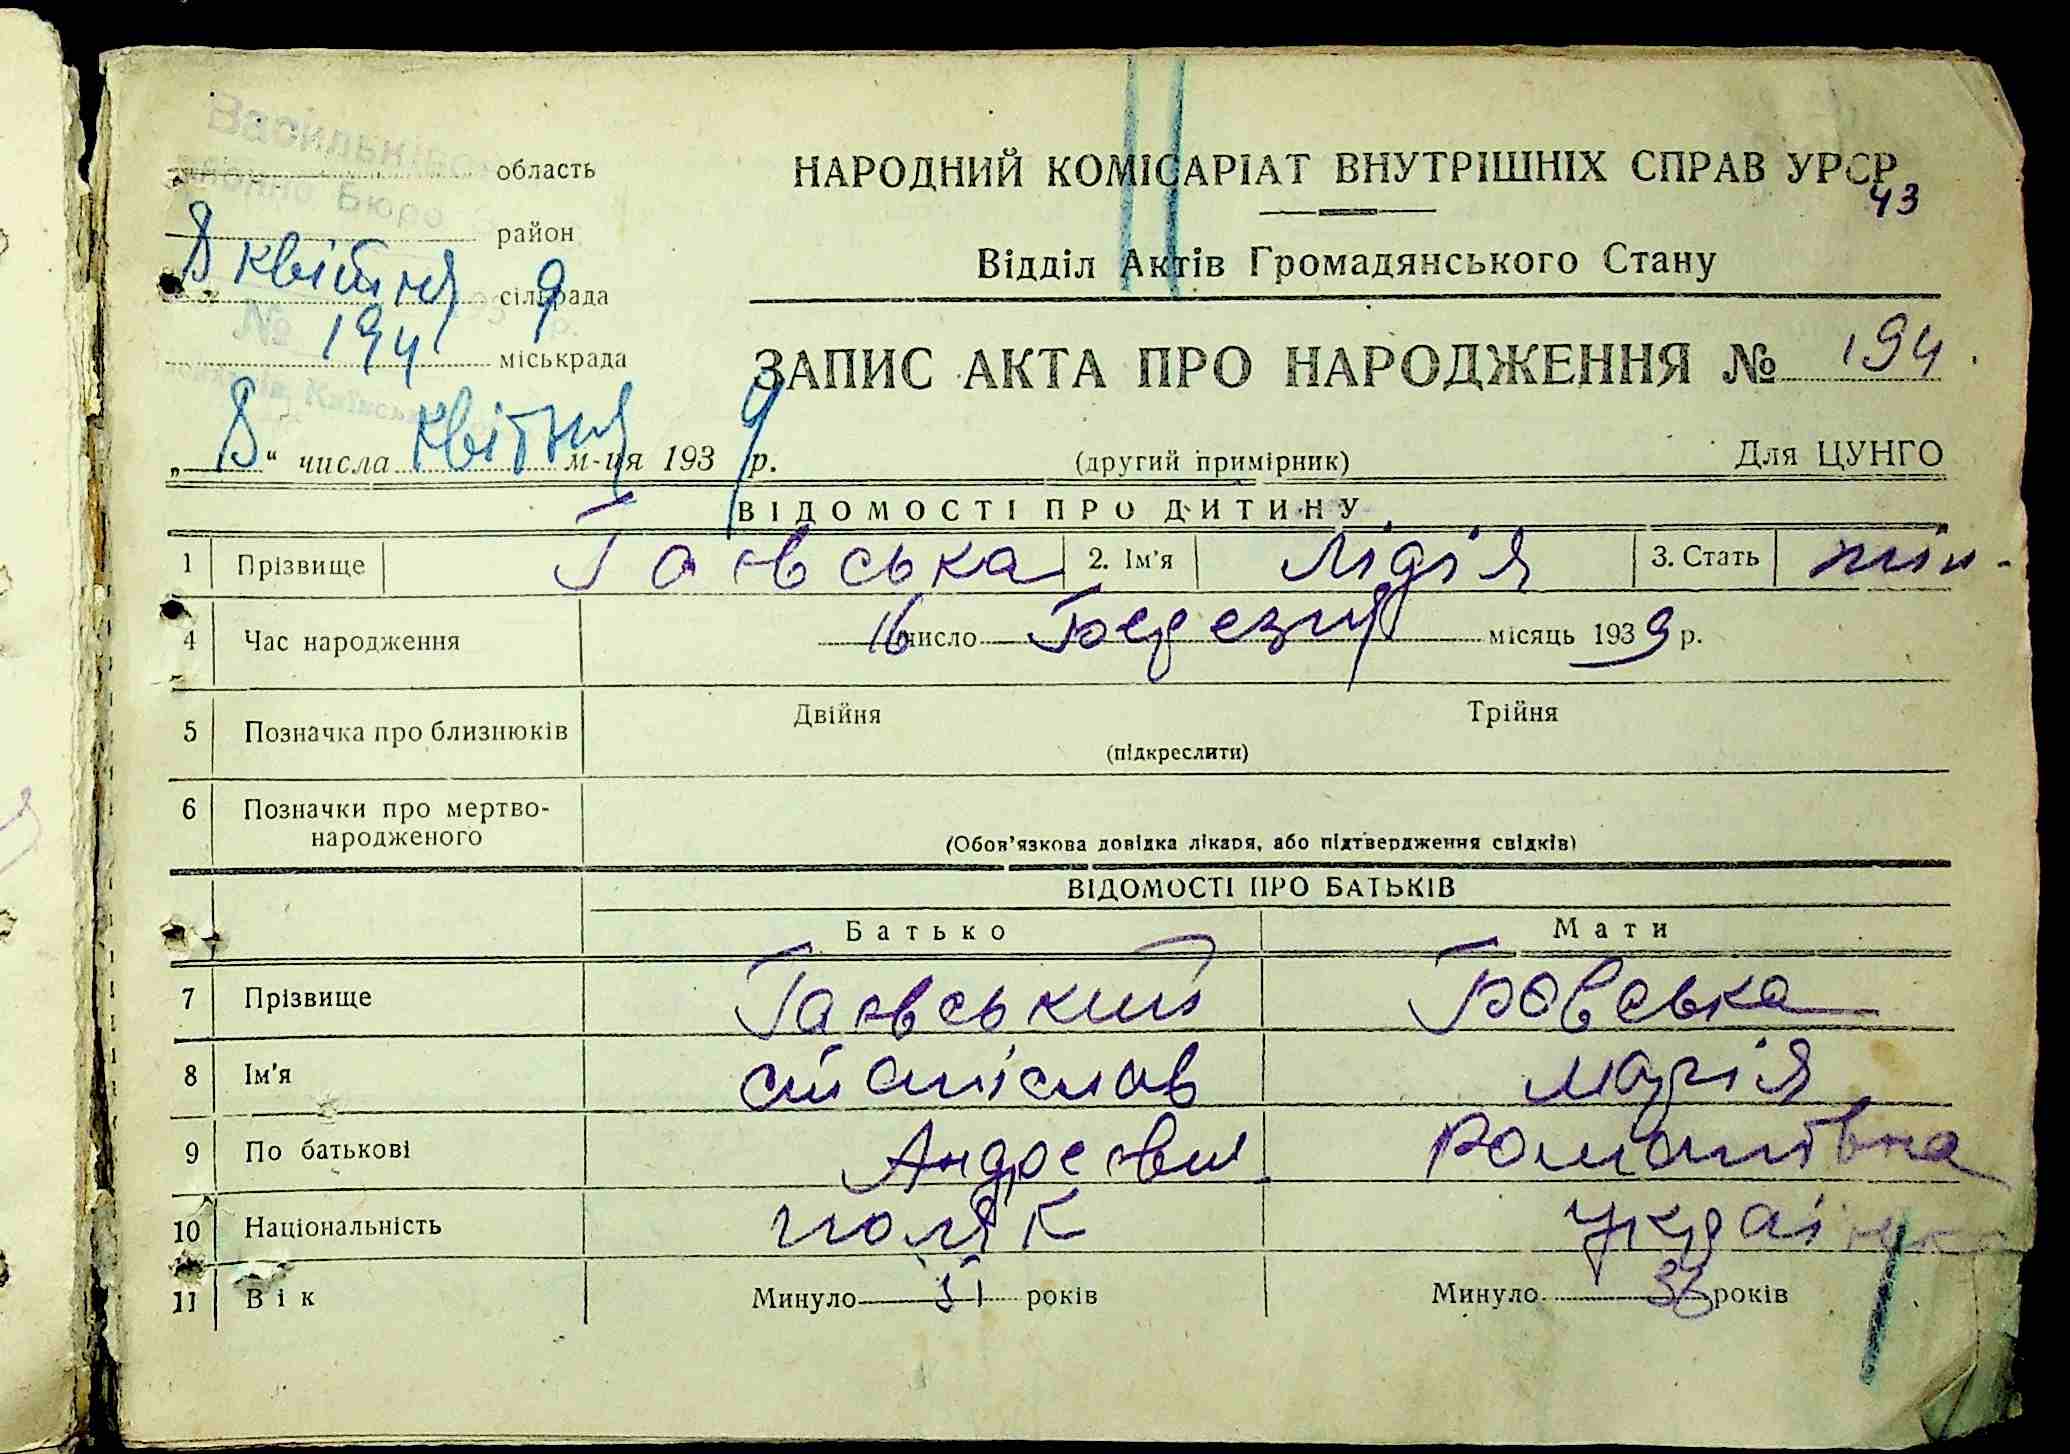 область НАРОДНИЙ КОМІСАРІАТ ВНУТРІШНІХ СПРАВ УРСР
43
Бюро
район
Відділ Актів Громадянського Стану
8 квітня 9 сільрада
№ 194 міськрада
ЗАПИС АКТА ПРО НАРОДЖЕННЯ № 194
„8“ числа квітня м-ця 1939 р. (другий примірник) Для ЦУНГО
ВІДОМОСТІ ПРО ДИТИНУ
1 Прізвище Гаєвська 2. Ім'я Лідія 3. Стать жін-
4 Час народження 16 число Березня місяць 1939 р.
5 Позначка про близнюків Двійня Трійня
(підкреслити)
6 Позначки про мертво-
народженого
(Обов'язкова довідка лікаря, або підтвердження свідків)
ВІДОМОСТІ ПРО БАТЬКІВ
Батько Мати
7 Прізвище Гаєвський Боєвська
8 Ім'я Станіслав Марія
9 По батькові Андреєвич Романівна
10 Національність поляк українка
11 Вік Минуло років Минуло років